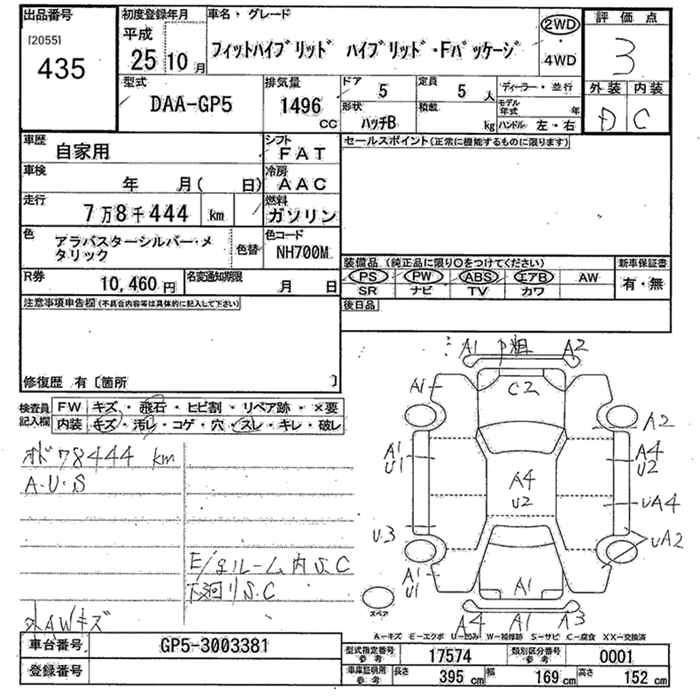 出品番号
[2055]
435
初度登録年月
平成
25 10 月
車名・グレード
フィットハイブリッド ハイブリッド・Fパッケージ
2WD
4WD
評価点
3
外装 内装
D C
型式
DAA-GP5
排気量
1496 CC
ドア
5
定員
5 人
形状
ハッチB
積載
kg
ディーラー・並行
モデル年式 年
ハンドル 左・右
車歴
自家用
シフト
FAT
車検
年 月( 日)
冷房
AAC
走行
7万8千444 km
燃料
ガソリン
色
アラバスターシルバー・メタリック
色替
色コード
NH700M
R券
10,460 円
名変通知期限
月 日
セールスポイント(正常に機能するものに限ります)
装備品(純正品に限り○をつけてください)
新車保証書
PS PW ABS エアB AW
SR ナビ TV カワ
有・無
後日品
注意事項申告欄(不具合内容等は具体的に記入して下さい)
修復歴 有〔箇所 〕
検査員記入欄
FW キズ・飛石・ヒビ割・リペア跡・×要
内装 キズ・汚レ・コゲ・穴・スレ・キレ・破レ
オドワ78444 km
A・U・S
E/gルーム内S.C
下廻りS.C
AWキズ
A1 中粗 A2
A1 C2
A2
A1 U1
A4 U2
A4 U2
UA4
U3
UA2
A1 U1
A1
A4 A1 A3
スペア
A-キズ E-エクボ U-凹み W-補修跡 S-サビ C-腐食 XX-交換済
車台番号
GP5-3003381
登録番号
型式指定番号 参考
17574
類別区分番号 参考
0001
車庫証明用 参考
長さ 395 cm 幅 169 cm 高さ 152 cm